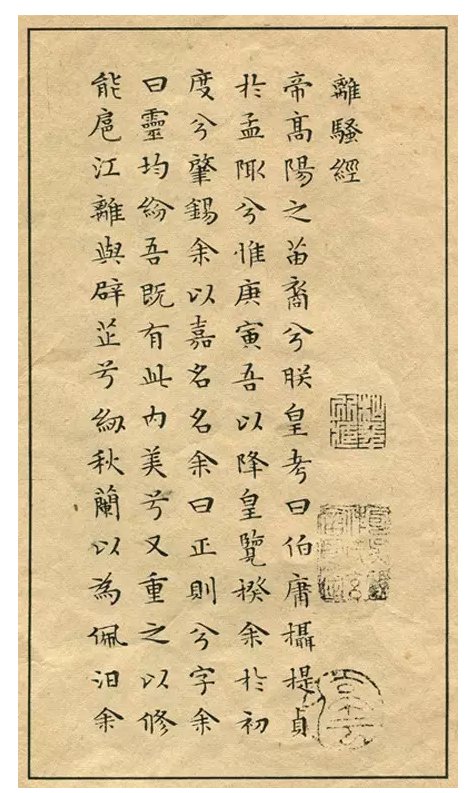 離騷經
帝髙陽之苗裔兮朕皇考曰伯庸攝提貞
於孟陬兮惟庚寅吾以降皇覽揆余於初
度兮肇錫余以嘉名名余曰正則兮字余
曰靈均紛吾既有此内美兮又重之以修
能扈江離與辟芷兮紉秋蘭以為佩汩余